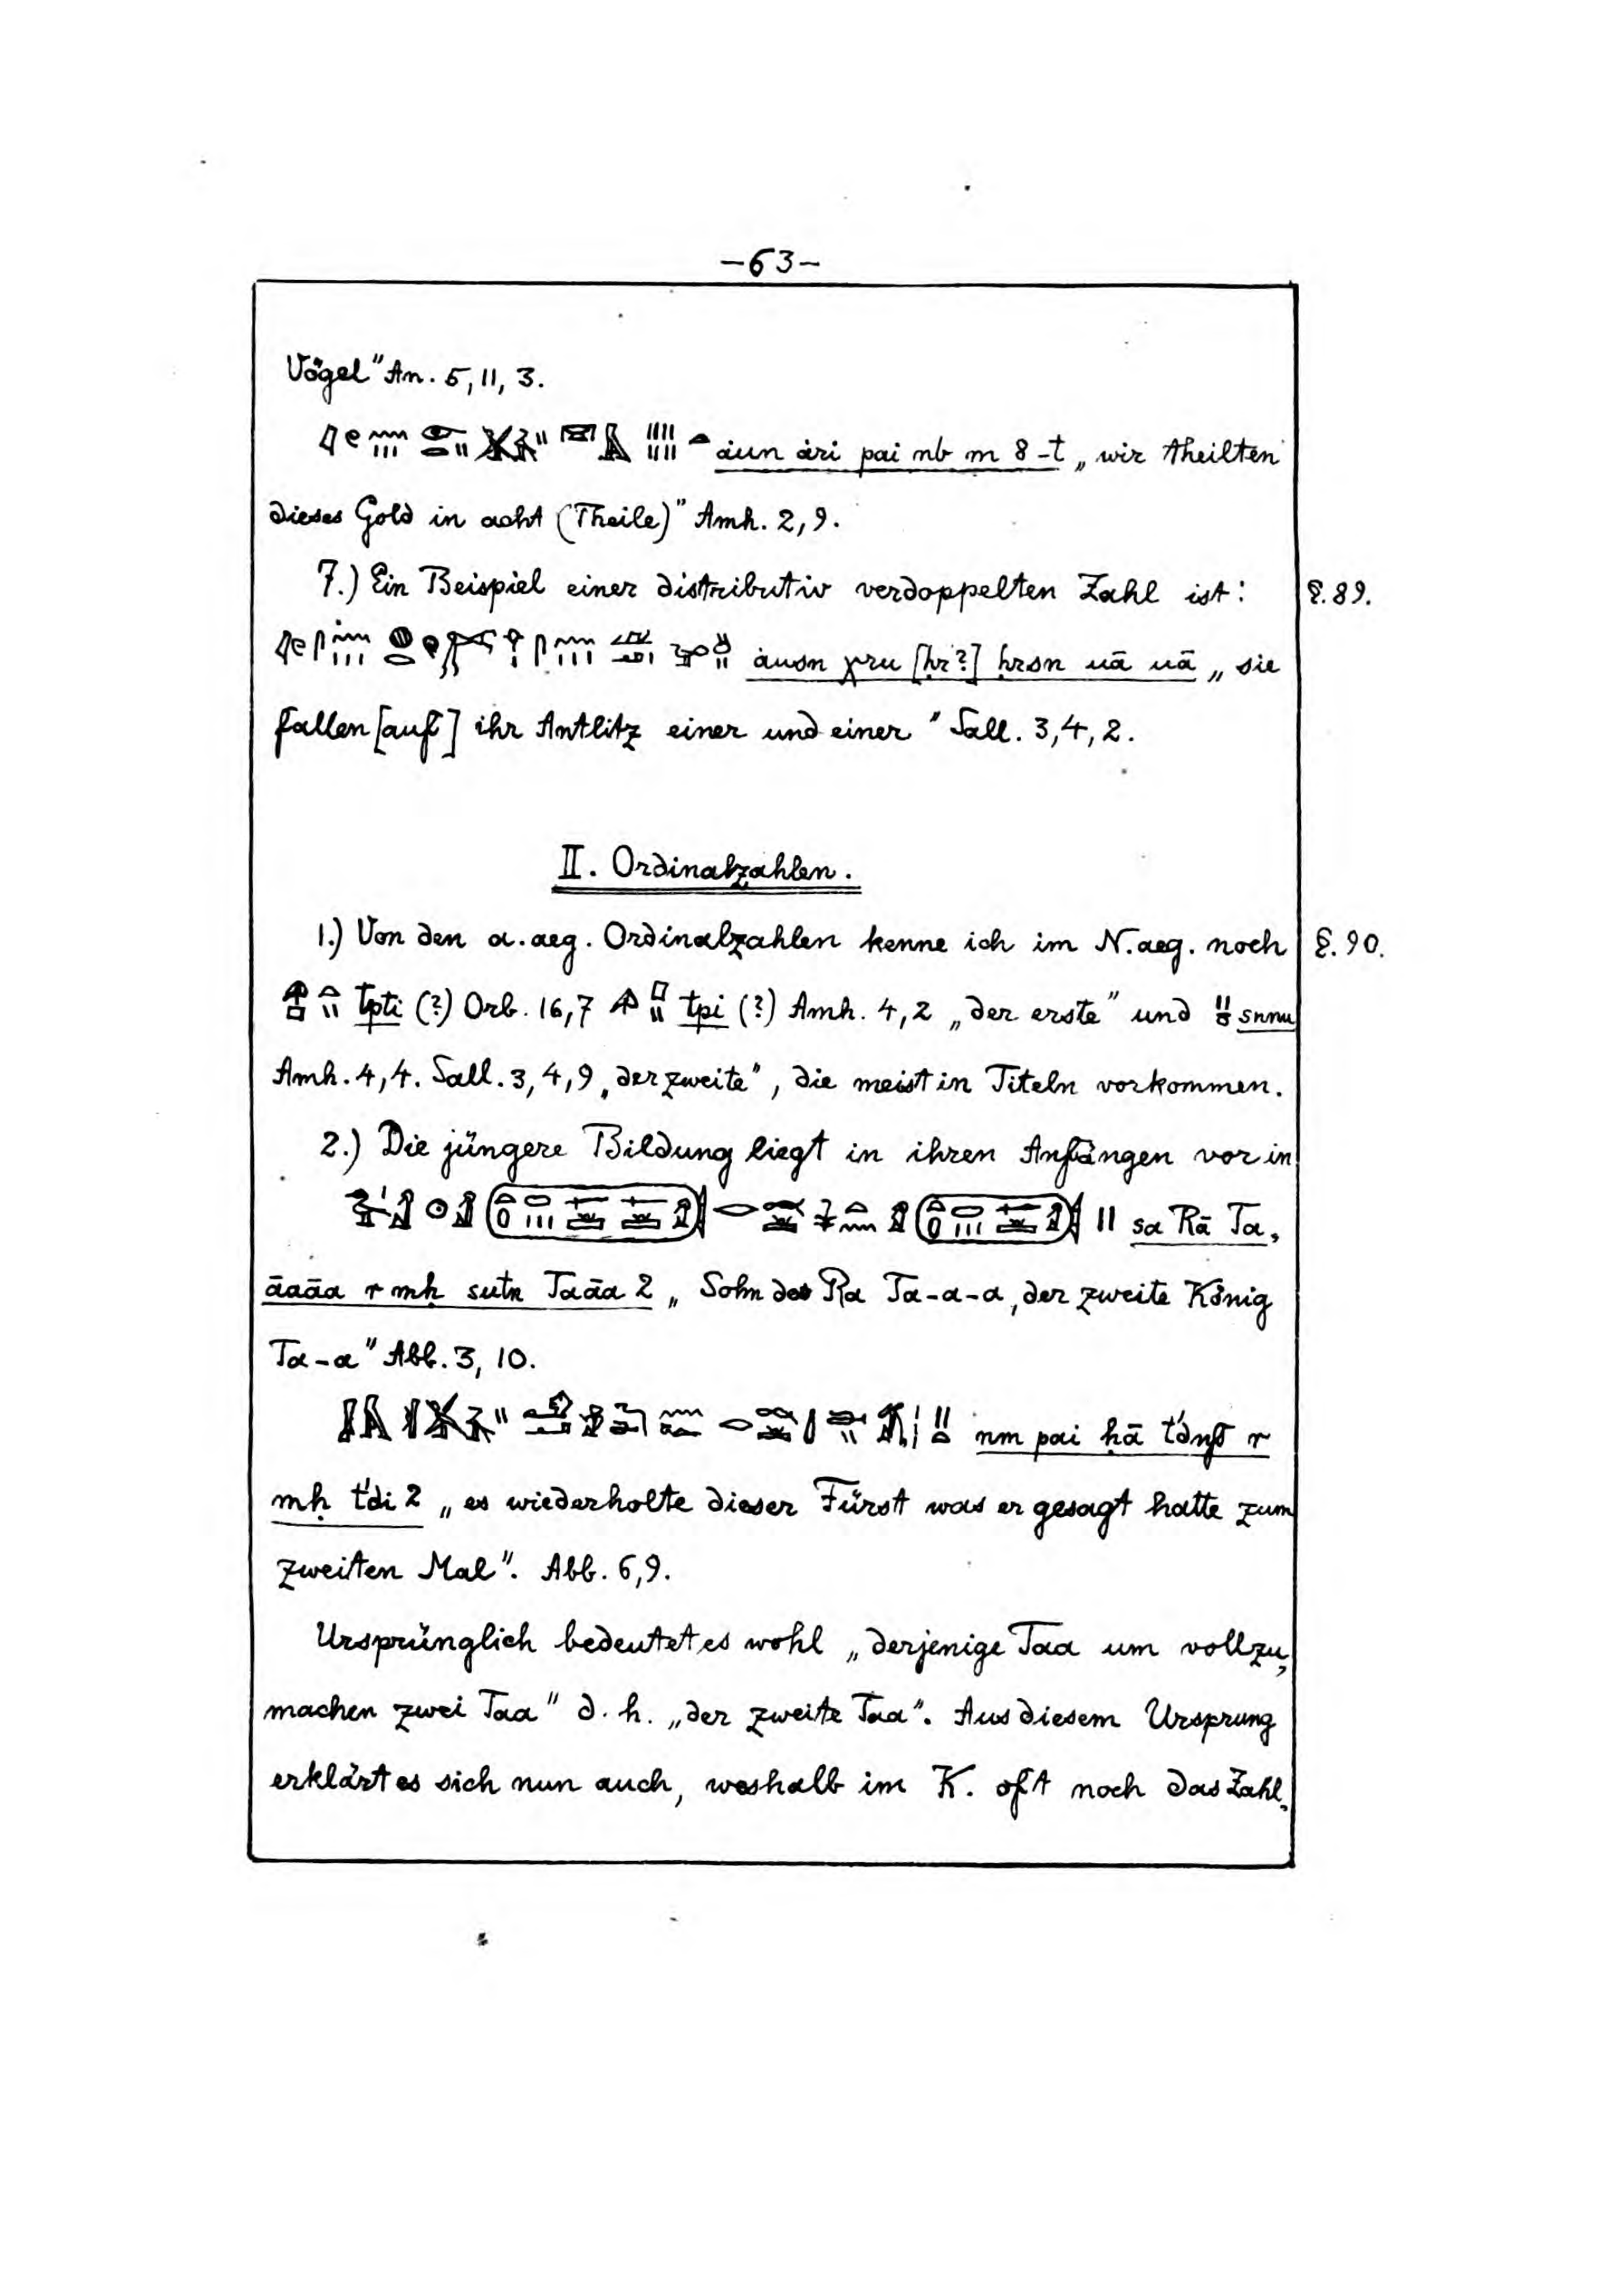 –63–
Vögel" An. 5, 11, 3.
áun ári pai nb m 8-t „wir theilten
dieses Gold in acht (Theile)" Amh. 2, 9.
7.) Ein Beispiel einer distributiv verdoppelten Zahl ist: §. 89.
áusn χru [ḥr?] ḥrsn uā uā „sie
fallen [auf] ihr Antlitz einer und einer" Sall. 3, 4, 2.
II. Ordinalzahlen.
1.) Von den a.aeg. Ordinalzahlen kenne ich im N.aeg. noch §. 90.
tpti (?) Orb. 16, 7 tpi (?) Amh. 4, 2 „der erste" und snnu
Amh. 4, 4. Sall. 3, 4, 9 „der zweite", die meist in Titeln vorkommen.
2.) Die jüngere Bildung liegt in ihren Anfängen vor in
sa Rā Ta-
āaāa r mḥ sutn Taāa 2 „Sohn des Ra Ta-a-a, der zweite König
Ta-a" Abb. 3, 10.
nm pai ḥā t'dnf r
mḥ t'di 2 „es wiederholte dieser Fürst was er gesagt hatte zum
zweiten Mal". Abb. 6, 9.
Ursprünglich bedeutet es wohl „derjenige Taa um vollzu-
machen zwei Taa" d. h. „der zweite Taa". Aus diesem Ursprung
erklärt es sich nun auch, weshalb im K. oft noch das Zahl-